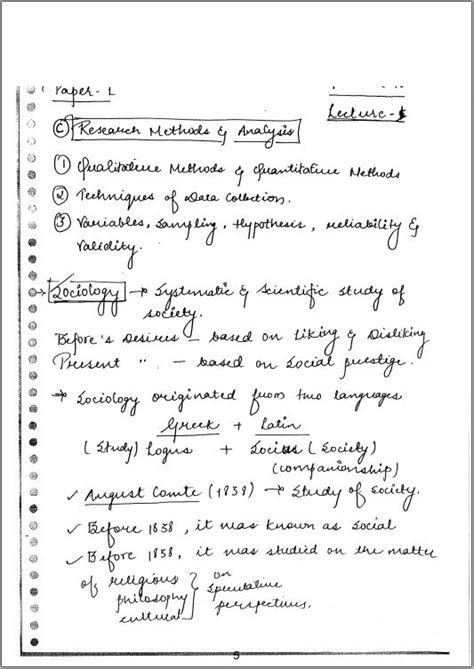 Paper - 1
Lecture - 1
C Research Methods & Analysis
① Qualitative Methods & Quantitative Methods
② Techniques of Data Collection.
③ Variables, Sampling, Hypothesis, reliability &
Validity.
→ Sociology → Systematic & Scientific study of
society.
Before's Desires – based on Liking & Disliking
Present " – based on Social prestige.
→ Sociology originated from two languages
Greek + Latin
(Study) Logus + Socius (Society)
(companionship)
✓ August Comte (1839) → Study of Society.
✓ Before 1838, it was known as social
✓ Before 1838, it was studied on the matter
of religious } on
philosophy } Speculative
cultural } perspectives.
5